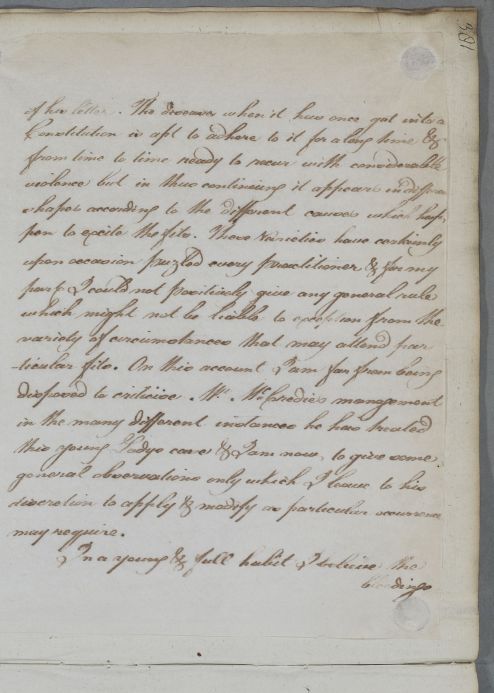 of her letter. The disease when it has once got into a
Constitution is apt to adhere to it for a long time &
from time to time ready to recur with considerable
violence but in thus continuing it appears in differen
shapes according to the different causes which hap
pen to excite the fits. These Varieties have certainly
upon occasion puzled every practitioner & for my
part I could not positively give any general rule
which might not be liable to exception from the
variety of circumstances that may attend par
-ticular fits. On this account I am far from being
disposed to criticise Mr. McCredie's management
in the many different instances he has treated
this young Ladys case & I am now to give some
general observations only which I leave to his
discretion to apply & modify as particular occurrence
may require.
In a young & full habit I believe the
bleedings
301